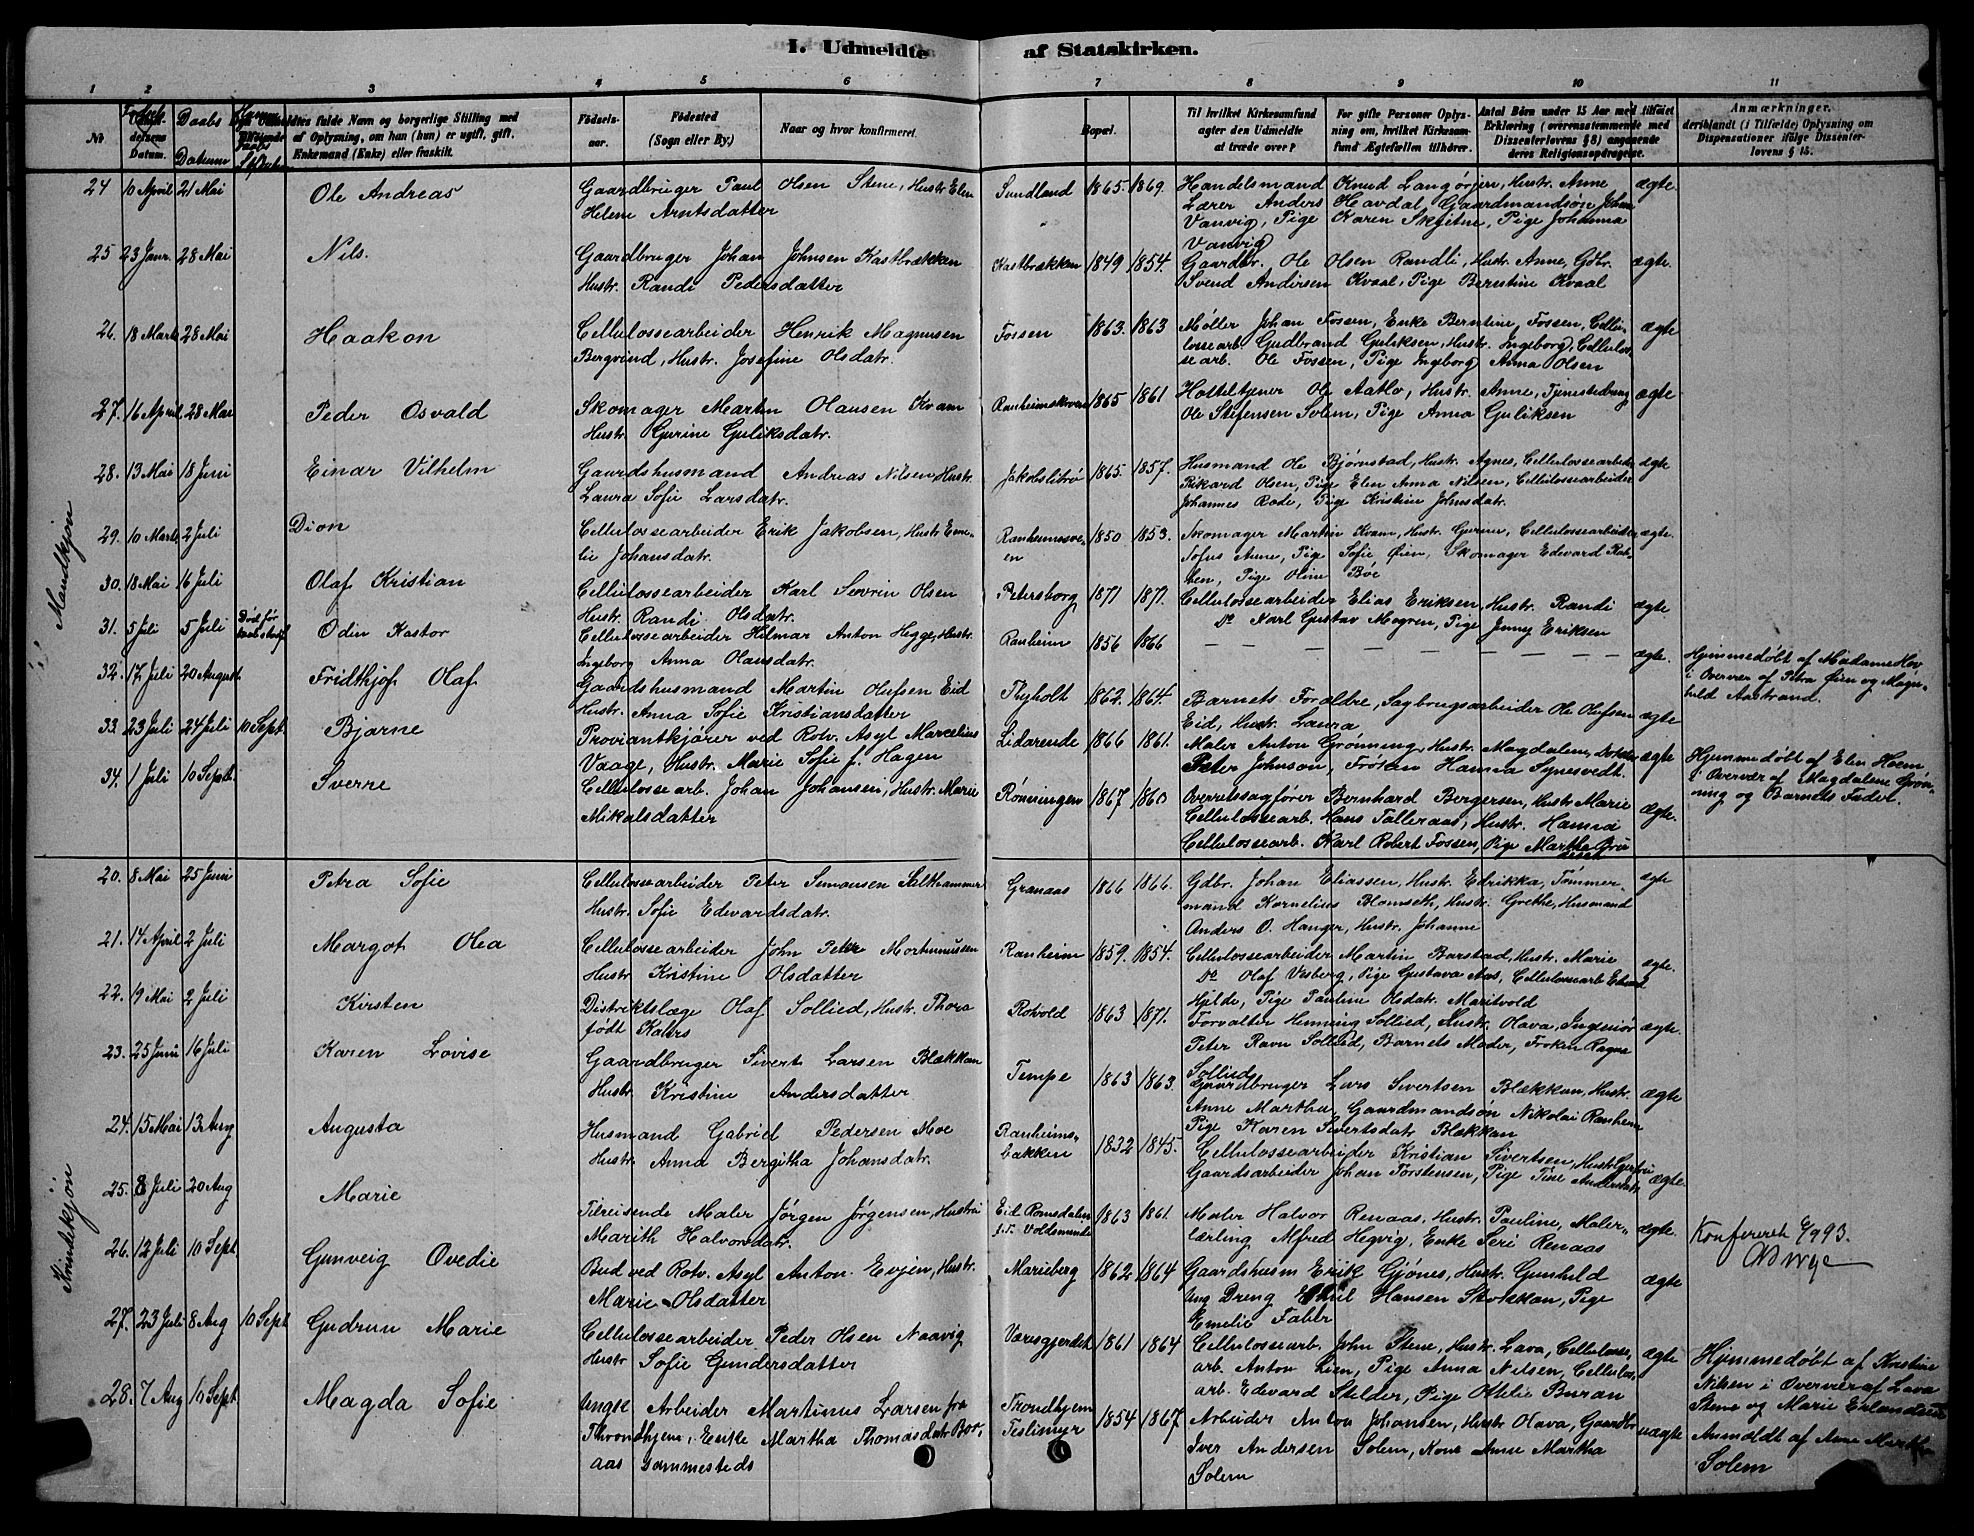 I. Udmeldte af Statskirken.
1 2 3 4 5 6 7 8 9 10 11
No
Daabs Datum
Udmeldtes fulde Navn og borgerlige Stilling med
af Oplysning, om han (hun) er ugift, gift,
Enkemand (Enke) eller fraskilt.
Fødsels-
aar.
Fødested
(Sogn eller By.)
Naar og hvor konfirmeret.
Bopæl.
Til hvilket Kirkesamfund
agter den Udmeldte
at træde over?
For gifte Personer Oplys-
ning om, hvilket Kirkesam-
fund Ægtefællen tilhører.
Antal Børn under 15 Aar med tilføiet
Erklæring (overensstemmende med
Dissenterlovens § 8) angaaende
deres Religionsopdragelse.
Anmærkninger,
deriblandt (i Tilfælde) Oplysning om
Dispensationer ifølge Dissenter-
lovens § 15.
Mandkjøn
24 10 April 21 Mai Ole Andreas Gaardbruger Paul Olsen Stene, Hustr. Elen Sundland 1865. 1869. Handelsmand Knud Langørgen, Hustr. Anne ægte
Helene Arntsdatter Lærer Anders Havdal, Gaardmandsøn Johan
Vanvig, Pige Karen Skjetne, Pige Johanna
Vanvig
25 23 Janr. 28 Mai Nils. Gaardbruger Johan Johnsen Kastbrækken Kastbrækken 1849 1854. Gaardbr. Ole Olsen Randli, Hustr. Anne, Gdbr. ægte.
Hustr. Randi Pedersdatter Svend Andersen Kvaal, Pige Berntine Kvaal
26. 18 Marts 28 Mai Haakon Cellulossearbeider Henrik Magnusen Fossen 1863. 1863 Møller Johan Fossen, Enke Berntine Fossen, Cellu- ægte
Bergvind, Hustr. Josefine Olsdatr. lossearb. Gudbrand Guliksen, Hustr. Ingeborg, Cellulos-
searb. Ole Fossen, Pige Ingeborg Anna Olsen
27. 16 April 28 Mai Peder Osvald Skomager Martin Olausen Kvam 1865 1861 Hotteltjener Ole Aatlo, Hustr. Anne, Tjenestedreng ægte
Hustr. Gurine Guliksdatr. Ole Stefensen Solem, Pige Anna Guliksen
28. 13 Mai 18 Juni Einar Vilhelm Gaardshusmand Andreas Nilsen, Hustr. Jakobslitrø 1865. 1857. Husmand Ole Bjørnstad, Hustr. Agnes, Cellulossearbeider ægte
Laura Sofie Larsdatr. Rikard Olsen, Pige Elen Anna Nilsen, Cellulossearbeider
Johannes Rode, Pige Kristine Johnsdatr.
29. 10 Marts 2 Juli Dion Cellulossearbeider Erik Jakobsen, Hustr. Eme- Ranheimsve- 1850 1853. Skomager Martin Kvam, Hustr. Gurine, Cellulossearbeider ægte.
lie Johansdatr. en Sofus Aune, Pige Sofie Øien, Skomager Edevard Rat-
ken, Pige Oline Bøe
30. 18 Mai 16 Juli Olaf Kristian Cellulossearbeider Karl Severin Olsen Petersborg 1871 1871. Cellulossearbeider Elias Eriksen, Hustr. Randi ægte
Hustr. Randi Olsdatr. Do Karl Gustav Mogren, Pige Jenny Eriksen
31. 5 Juli 5 Juli Død før Odin Kastor Cellulossearbeider Hilmar Anton Hegge, Hustr. Ranheim 1856 1866 — — — ægte.
Ingeborg Anna Olausdatr.
32. 17 Juli 20 August Fridthjof Olaf Gaardshusmand Martin Olufsen Eid Thyholt 1862. 1864. Barnets Forældre, Sagbrugsarbeider Ole Olufsen ægte
Hustr. Anna Sofie Kristiansdatter Eid, Hustr. Laura
Hjemmedøbt af Madame Hov
i Overvær af Petra Øien og Magn-
hild Aastrand.
33. 23 Juli 24 Juli 10 Sept. Bjarne Proviantkjører ved Rotv. Asyl Marcelius Lidarende 1866 1861. Maler Anton Grønning, Hustr. Magdalene, ægte
Vaage, Hustr. Marie Sofie f. Hagen Peter Johnson, Frøken Hanna Synesvedt.
Hjemmedøbt af Elen Hoem
i Overvær af Magdalene Grøn-
ning og Barnets Fader.
34. 1 Juli 10 Sept. Sverre Cellulossearb. Johan Johansen, Hustr. Marie Rønningen 1867 1860 Overretssagfører Bernhard Bergersen, Hustr. Marie ægte.
Mikalsdatter Cellulossearb. Hans Talleraas, Hustr. Hanna
Cellulossearb. Karl Robert Fossen, Pige Martha
Kvindekjøn
20. 8 Mai 25 Juni Petra Sofie Cellulossearbeider Peter Simonsen Salthammer Granaas 1866 1866. Gdbr. Johan Eliassen, Hustr. Edrikka, Tømmer- ægte
Hustr. Sofie Edevardsdatr. mand Kornelius Blomseth, Hustr. Grethe, Husmand
Anders O. Hanger, Hustr. Johanne
21. 14 April 2 Juli Margot Olea Cellulossearbeider John Peter Mortinussen Ranheim 1859. 1854. Cellulossearbeider Martin Barstad, Hustr. Marie ægte.
Hustr. Kristine Olsdatter Do Olaf Vesberg, Pige Gustava Aas, Cellulossearb
Hjelde, Pige Pauline Olsdatr. Maritvold
22. 9 Mai 2 Juli Kirsten Distriktslæge Olaf Sollied, Hustr. Thora Rotvold 1863 1871. Forvalter Henning Sollied, Hustr. Olava, Ingeniør ægte.
født Kaurs Peter Ravn Sollied, Barnets Moder, Frøken Ragna
Sollied
23. 25 Juni 16 Juli Karen Lovise Gaardbruger Sivert Larsen Blækkan Tempe 1863 1863. Gaardbruger Lars Sivertsen Blækkan, Hustr. ægte
Hustr. Kristine Andersdatter Anne Martha, Gaardmandsøn Nikolai Ranheim
Pige Karen Sivertsdatr. Blækkan
24. 15 Mai 13. Aug Augusta Husmand Gabriel Pedersen Moe Ranheims- 1832 1845. Cellulossearbeider Kristian Sivertsen, Hustr.
Hustr. Anna Bergitha Johansdatr. bakken Gaardsarbeider Johan Torstensen, Pige Tine Andersdatr ægte.
25. 8 Juli 20 Aug Marie Tilreisende Maler Jørgen Jørgensen, Hustru Eid Romsdalen 1863 1861. Maler Halvor Renaas, Hustr. Pauline, Maler- ægte.
Marith Halvorsdatr. lærling Alfred Hegvig, Enke Seri Renaas
Konfereret
26. 12 Juli 10 Sept. Gunveig Ovedie Bud ved Rotv. Asyl Anton Evjen, Hustr. Marieberg 1862 1864 Gaardshusm Erik Gjønes, Hustr. Gunhild ægte
Marie Olsdatter Ung Dreng Emil Hansen Stokkan, Pige
Emelie Faber
27. 23 Juli 8 Aug 10 Sept Gudrun Marie Cellulossearbeider Peder Olsen Naavig Væresgjerdet 1861 1864 Cellulossearb. John Stene, Hustr. Lava, Cellulosse- ægte
Hustr Sofie Gundersdatter arb. Anton Lien, Pige Anna Nilsen, Cellulos.
arb. Edevard Skilder, Pige Othelie Buran
Hjemmedøbt af Kristine
Nilsen i Overvær af Lava
Stene og Marie Erlandsen
28. 7 Aug 10 Sept. Magda Sofie Ungk. Arbeider Martinus Larsen fra Trondhjem 1854 1867 Arbeider Anton Johansen, Hustr. Olava, Gaardbr uægte
Throndhjem, Enke Martha Thomasdatr. Teslimyr Iver Andersen Solem, Kone Anne Martha
aas sammesteds Solem
Anmeldt af Ane Martha
Solem